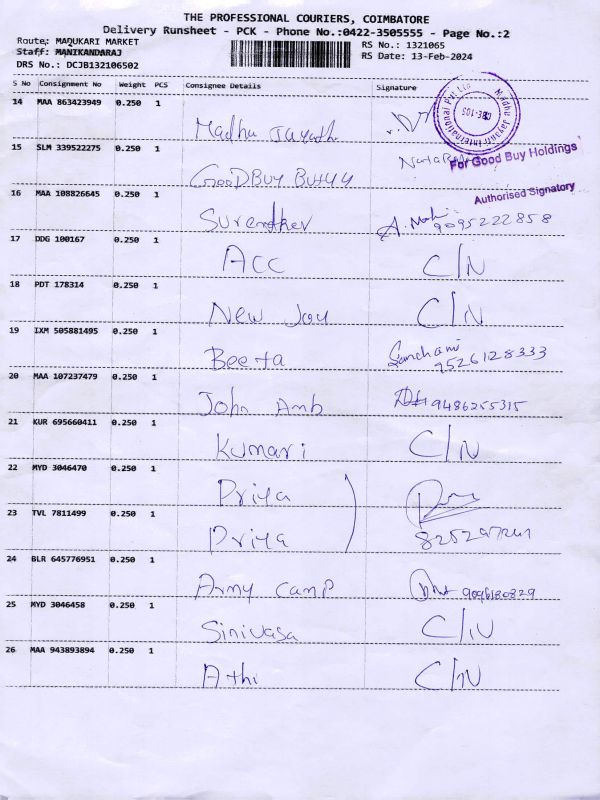 THE PROFESSIONAL COURIERS, COIMBATORE
Delivery Runsheet - PCK - Phone No.:0422-3505555 - Page No.:2
Route: MADUKARI MARKET
RS No.: 1321065
Staff: MANIKANDARAJ
RS Date: 13-Feb-2024
DRS No.: DCJB132106502
S No Consignment No Weight PCS Consignee Details Signature
14 MAA 863423949 0.250 1
Madhu Jayanth
15 SLM 339522275 0.250 1
For Good Buy Holdings
GOODBUY
16 MAA 108826645 0.250 1
Authorised Signatory
Surendher
9095222858
17 DDG 100167 0.250 1
ACC C/N
18 PDT 178314 0.250 1
New Joy C/N
19 IXM 505881495 0.250 1
Beeta
9526128333
20 MAA 107237479 0.250 1
John Amb 9486255315
21 KUR 695660411 0.250 1
Kumari C/N
22 MYD 3046470 0.250 1
Priya
23 TVL 7811499 0.250 1
Priya
24 BLR 645776951 0.250 1
Army camp
25 MYD 3046458 0.250 1
Sinivasa C/N
26 MAA 943893894 0.250 1
Athi C/N